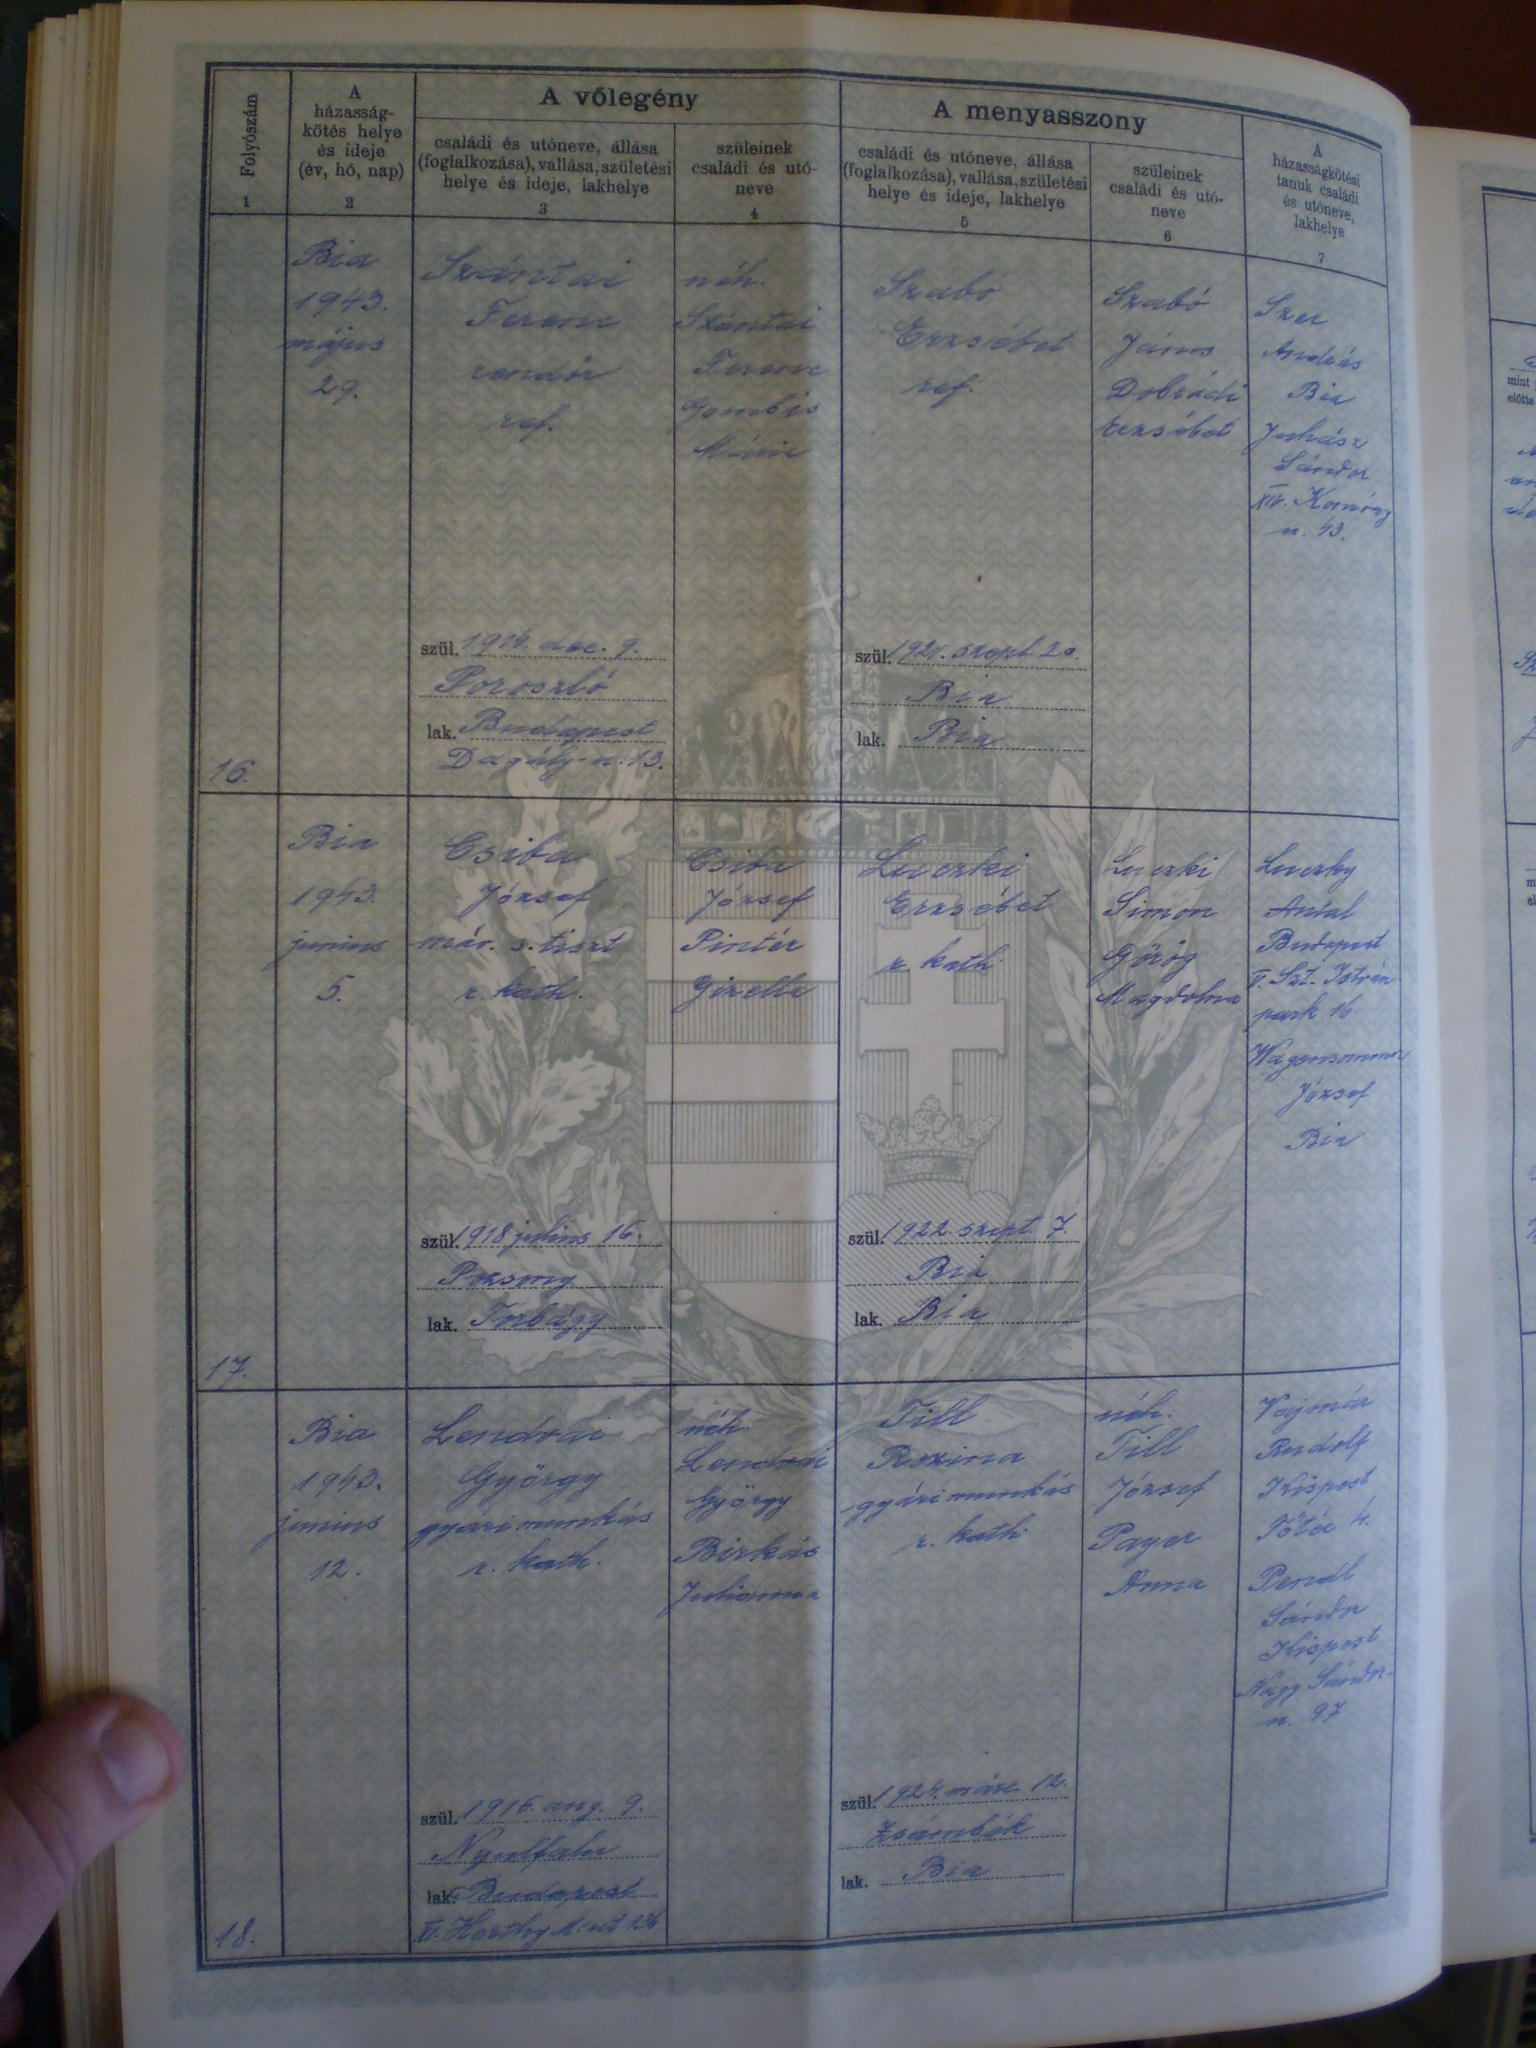 Folyószám
1
A
házasság-
kötés helye
és ideje
(év, hó, nap)
2
A vőlegény
családi és utóneve, állása
(foglalkozása), vallása, születési
helye és ideje, lakhelye
3
szüleinek
családi és utó-
neve
4
A menyasszony
családi és utóneve, állása
(foglalkozása), vallása, születési
helye és ideje, lakhelye
5
szüleinek
családi és utó-
neve
6
A
házasságkötési
tanuk családi
és utóneve,
lakhelye
7
16.
Bia
1943.
május
29.
Szántai
Ferenc
rendőr
ref.
szül. 1914. dec. 9.
Poroszló
lak. Budapest
Dagály-u. 13.
néh.
Szántai
Ferenc
Gombás
Mária
Szabó
Erzsébet
ref.
szül. 1921. szept 20.
Bia
lak. Bia
Szabó
János
Dobrádi
Erzsébet
Szer
András
Bia
Juhász
Sándor
XIV. Komróvy
u. 43.
17.
Bia
1943.
junius
5.
Csiba
József
máv. s. tiszt
r. kath.
szül. 1918 julius 16.
Pozsony
lak. Torbágy
Csiba
József
Pintér
Gizella
Luczki
Erzsébet
r. kath.
szül. 1922. szept. 7.
Bia
lak. Bia
Luczki
Simon
Görög
Magdolna
Luczky
Antal
Budapest
V. Szt. István
park 16.
Wagensommer
József
Bia
18.
Bia
1943.
junius
12.
Lendvai
György
gyári munkás
r. kath.
szül. 1916. aug. 9.
Nyulfalu
lak. Budapest
XI. Horthy M. út 136
néh.
Lendvai
György
Birkás
Julianna
Till
Rozina
gyári munkás
r. kath.
szül. 1924. márc 12.
Zsámbék
lak. Bia
néh.
Till
József
Payer
Anna
Vajmár
Rudolf
Kispest
Főtér 4.
Pendl
Sándor
Kispest
Nagy Sándor-
u. 97
mint
előtte